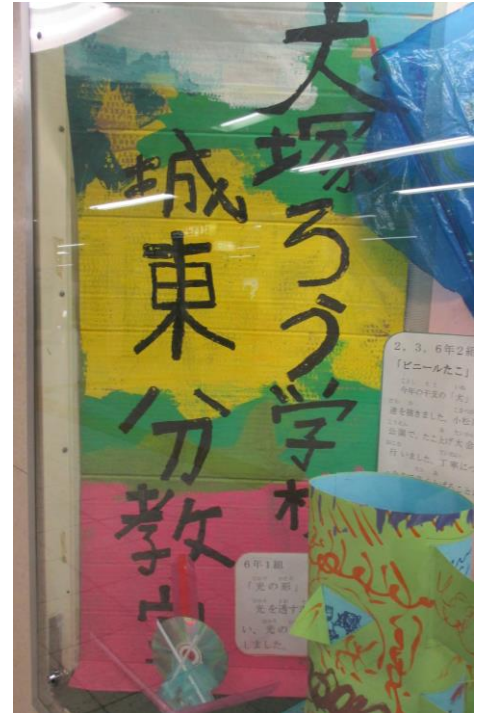 大塚ろう学校
城東分教室
2，3，6年2組
「ビニールたこ」
今年の干支の「犬」
達を描きました。小松川
公園で、たこ上げ大会
行いました。丁寧に
6年1組
「光の形」
光を透す
い、光の
しました。